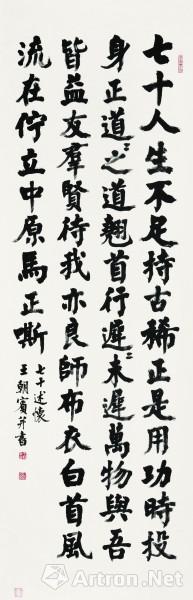 七十人生不足持古稀正是用功時投
身正道〻之道翹首行遲〻未遲萬物與吾
皆益友羣賢待我亦良師布衣白首風
流在佇立中原馬正嘶
七十述懷
王朝賓并書
Artron.Net